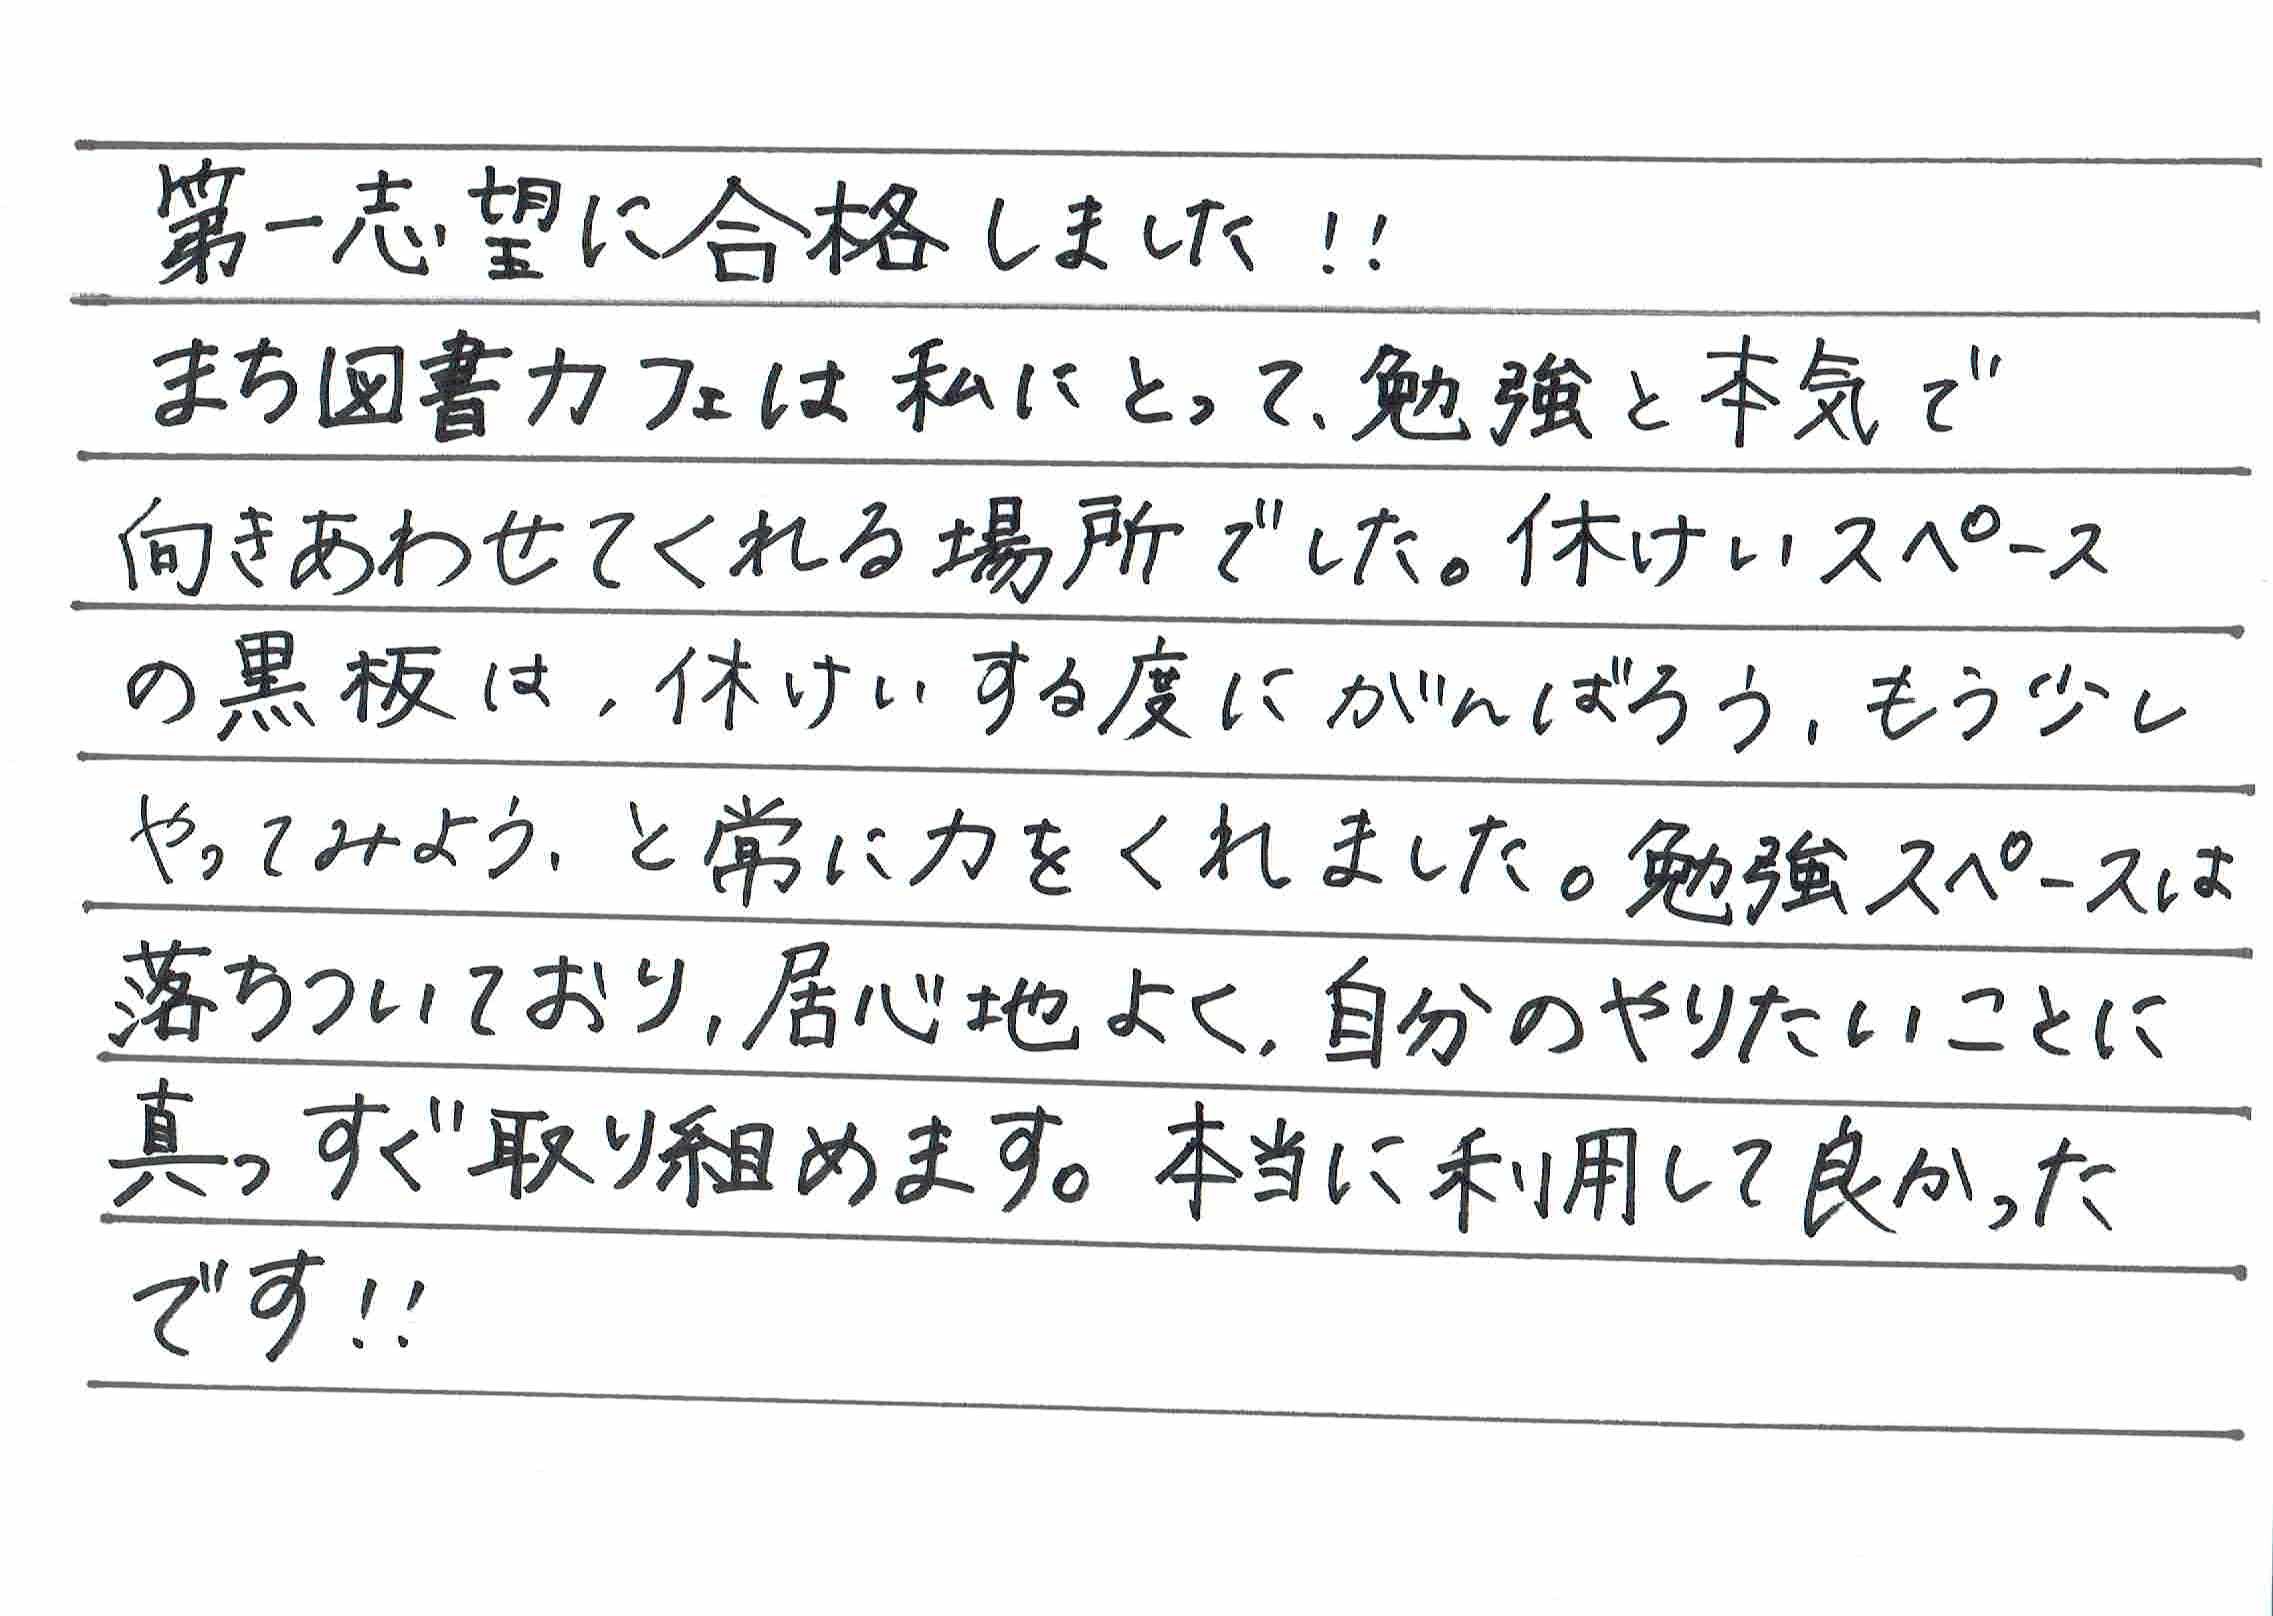 第一志望に合格しました!!
まち図書カフェは私にとって、勉強と本気で
向きあわせてくれる場所でした。休けいスペース
の黒板は、休けいする度にがんばろう、もう少し
やってみよう、と常に力をくれました。勉強スペースは
落ちついており、居心地よく、自分のやりたいことに
真っすぐ取り組めます。本当に利用して良かった
です!!